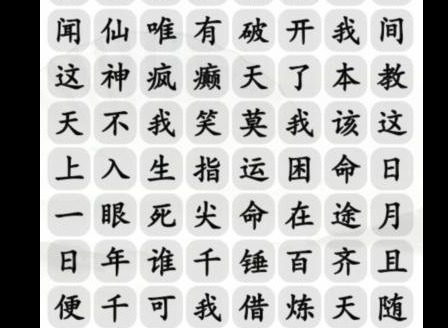 闻仙唯有破开我间
这神疯癫天了本教
天不我笑莫我该这
上入生指运困命日
一眼死尖命在途月
日年谁千锤百齐且
便千可我借炼天随